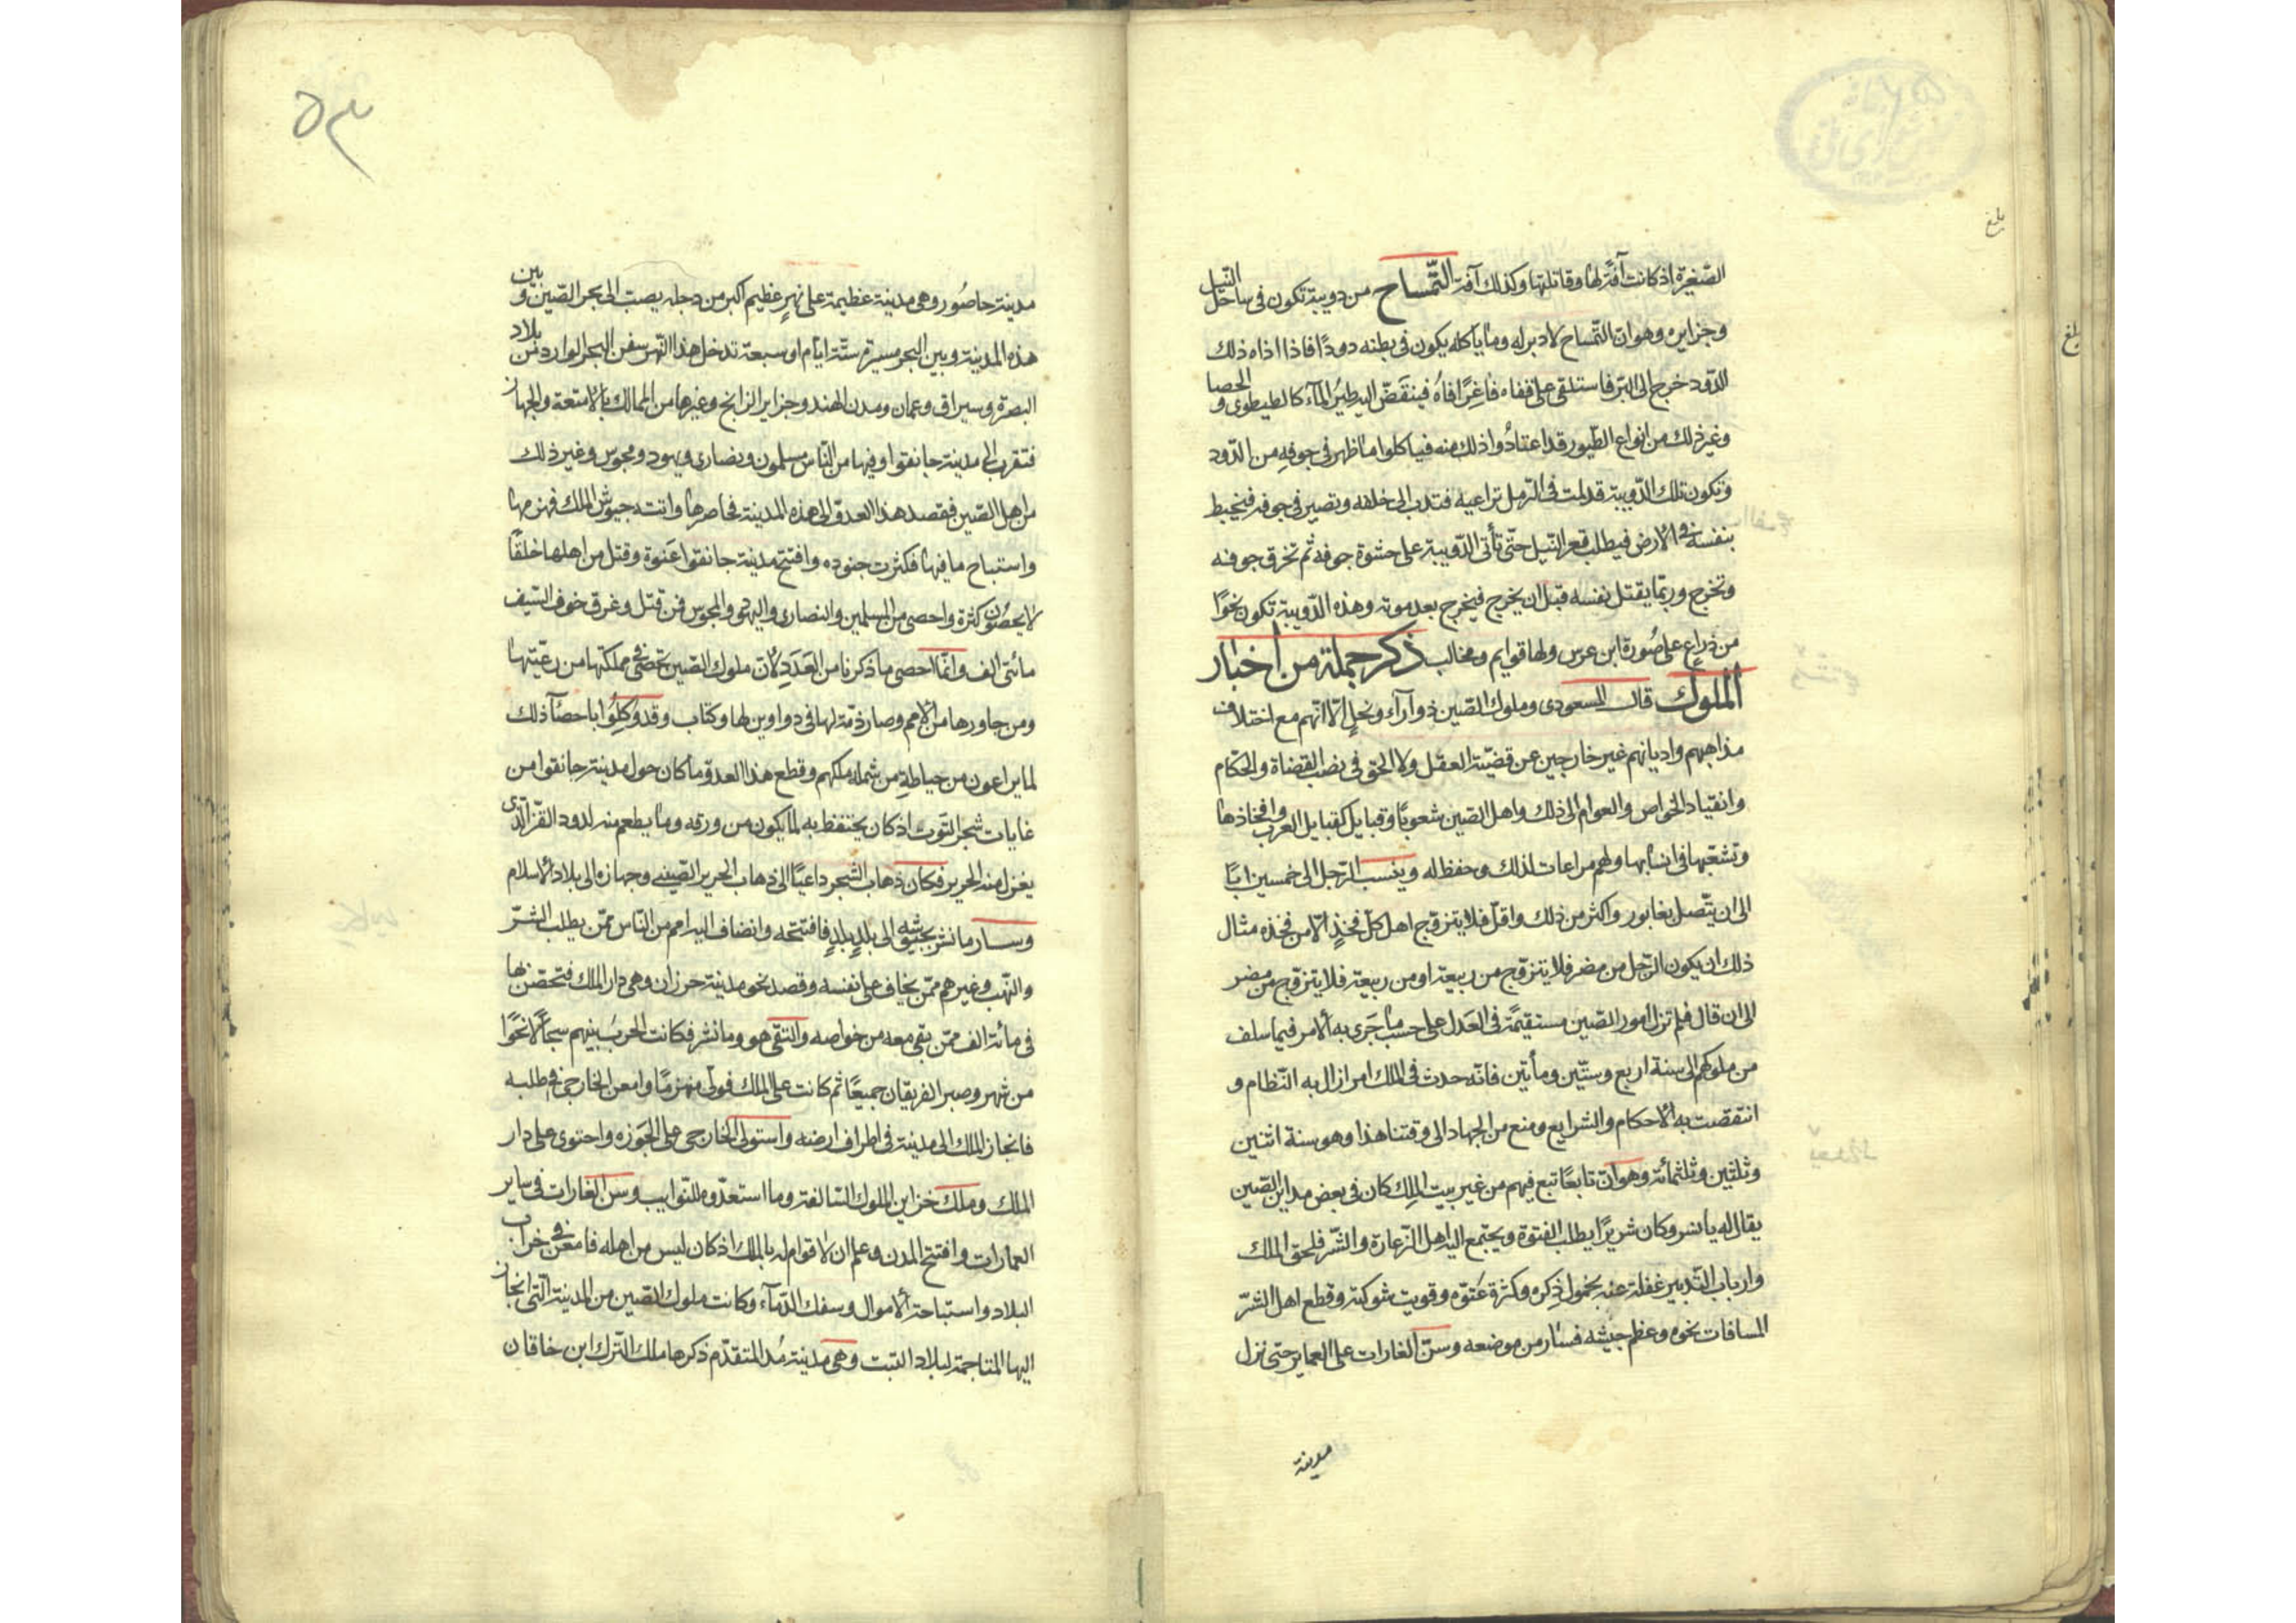 الصّغيرة اذ كانت آفة لها وقاتلتها وكذلك آفة التّمساح من دويبة تكون فى ساحل النّيل
وجزايره وهو ان التّمساح لا دبر له وما يأكله يكون فى بطنه دودًا فاذا اذاه ذلك
الدّود خرج الى البّر فاستلقى على قفاه فاغرًا فاه فينقضّ اليه طير المآء كالطيطوى و الحصا
وغير ذلك من انواع الطّيور قد اعتادُوا ذلك منه فياكلوا ما ظهر فى جوفه من الدّود
وتكون تلك الدّويبة قد كمنت فى الرّمل تراعيه فتدب الى حلقه وتصير فى جوفه فيخبط
بنفسه فى الارض فيطلب قعر النّيل حتّى تأتى الدّويبة على حشوة جوفه ثم تخرق جوفه
وتخرج وربّما يقتل نفسه قبل ان يخرج فيخرج بعد موته وهذه الدّويبة تكون نحوًا
من ذراع على صُورة ابن عرس ولها قوايم ومخالب ذكر جملة من اخبار
الملوك قال المسعودى وملوك الصّين ذو آرآء ونحل الّا انّهم مع اختلاف
مذاهبهم واديانهم غير خارجين عن قضيّة العقل ولا الحق فى نصب القضاة والحكّام
وانقياد الخواص والعوام الى ذلك واهل الصّين شعوبًا وقبايل كقبايل العرب وافخاذها
وتشعّبها فى انسابها ولهم مراعات لذلك وحفظ له وينسب الرّجل الى خمسين ابًا
الى ان يتّصل بغابور واكثر من ذلك واقلّ فلا يتزوّج اهل كلّ فخذٍ الّا من فخذه مثال
ذلك ان يكون الرّجل من مضر فلا يتزوّج من ربيعة او من ربيعة فلا يتزوّج من مضر
الى ان قال فلم تزل أمور الصّين مستقيمًة فى العَدل على حسب ما جَرى به ألامر فيما سلف
من ملوكهم الى سنة اربع وستّين ومأتين فانّه حدث فى الملك امر ازال به النّظام و
انتقضت به الاحكام والشرايع ومنع من الجهاد الى وقتنا هذا وهو سنة اثنين
وثلثين وثلثمائة وهو انّ تابعًا تبع فيهم من غير بيت الملِك كان فى بعض مداين الصّين
يقال له يانسر وكان شريرًا يطلب الفتوة ويجتمع اليه اهل الزّعارة والشّر فلحق الملك
وارباب التّدبير غفلة عنه بخمول ذِكره وكثرة عَتوّه وقويت شوكته وقطع اهل الشّرّ
المسافات نحوه وعظم جيشه فسار من موضعه وسنّ الغارات على العماير حتى نزل
مدينة
بلغ
بلغ
٥٣
مدينة حاصُور وهى مدينة عظيمة على نهرٍ عظيم اكبر من دجلة يصبّ الى بحر الصّين و بين
هذه المدينة وبين البحر مسيرة ستّة ايّام او سبعة تدخل هذا النّهر سفن البحر الواردة من بلاد
البصرة وسيراف وعمان ومدن الهند وجزاير الزابخ وغيرها من الممالك بالامتعة والجهاز
فتقرب الى مدينة جانقوا وفيها من النّاس مسلمون ونصارى ويهود ومجوس وغير ذلك
من اهل الصّين فقصد هذا العدوّ الى هذه المدينة فحاصرها واتته جيوش الملك فهزمها
واستباح ما فيها فكثرت جنوده وافتتح مدينة جانقوا عَنوة وقتل من اهلها خلقًا
لا يحصُون كثرة واحصى من المسلمين والنصارى واليهود والمجوس فمن قتل وغرق خوف السّيف
مائتى الف وانّما احصى ما ذكرنا من العَدَدِ لأن ملوك الصّين تحصى فى مملكتها من رعيّتها
ومن جاورها من الامم وصار ذمّة لها فى دواوين لها وكتاب وقد وكلوا باحصآ ذلك
لما يراعون من حياطة من شمله ملكهم وقطع هذا العدوّ ما كان حول مدينة جانقوا من
غابات شجر التّوت اذ كان يحتفظ به لما يكون من ورقه وما يطعم منه لدود القزّ الّذى
يغزل منه الحرير فكان ذهاب الشّجر داعيًا الى ذهاب الحرير الصّينى وجهازه الى بلاد ألاسلام
وسار مانشر بجيوشه الى بلدٍ بلدٍ فافتتحه وانضاف اليه امم من النّاس ممّن يطلب الشّرّ
والنّهب وغيرهم ممّن يخاف على نفسه وقصد نحو مدينة حرزان وهى دار الملك فتحصّن بها
فى مائة الف ممّن بقى معه من خواصه والتقى هو ومانشر فكانت الحرب بينهم سجالًا نحوًا
من شهر وصبر الفريقان جميعًا ثم كانت على الملك فولّى منهزمًا وامعن الخارجى فى طلبه
فانحاز الملك الى مدينة فى اطراف ارضه واستولى الخارجى على الحَوزه واحتوى على دار
الملك وملك خزاين الملوك السّالفة وما استعدّوه للنّوايب وسن الغارات فى ساير
العمارات وافتتح المدن وعلم ان لا قوام له بالملك اذ كان ليس من اهله فامعن فى خراب
البلاد واستباحة ألاموال وسفك الدّمآء وكانت ملوك الصّين من المدينة الّتى انحاز
اليها المتاخمة لبلاد التبت وهى مدينة مُد المتقدّم ذكرها ملك التّرك ابن خاقان